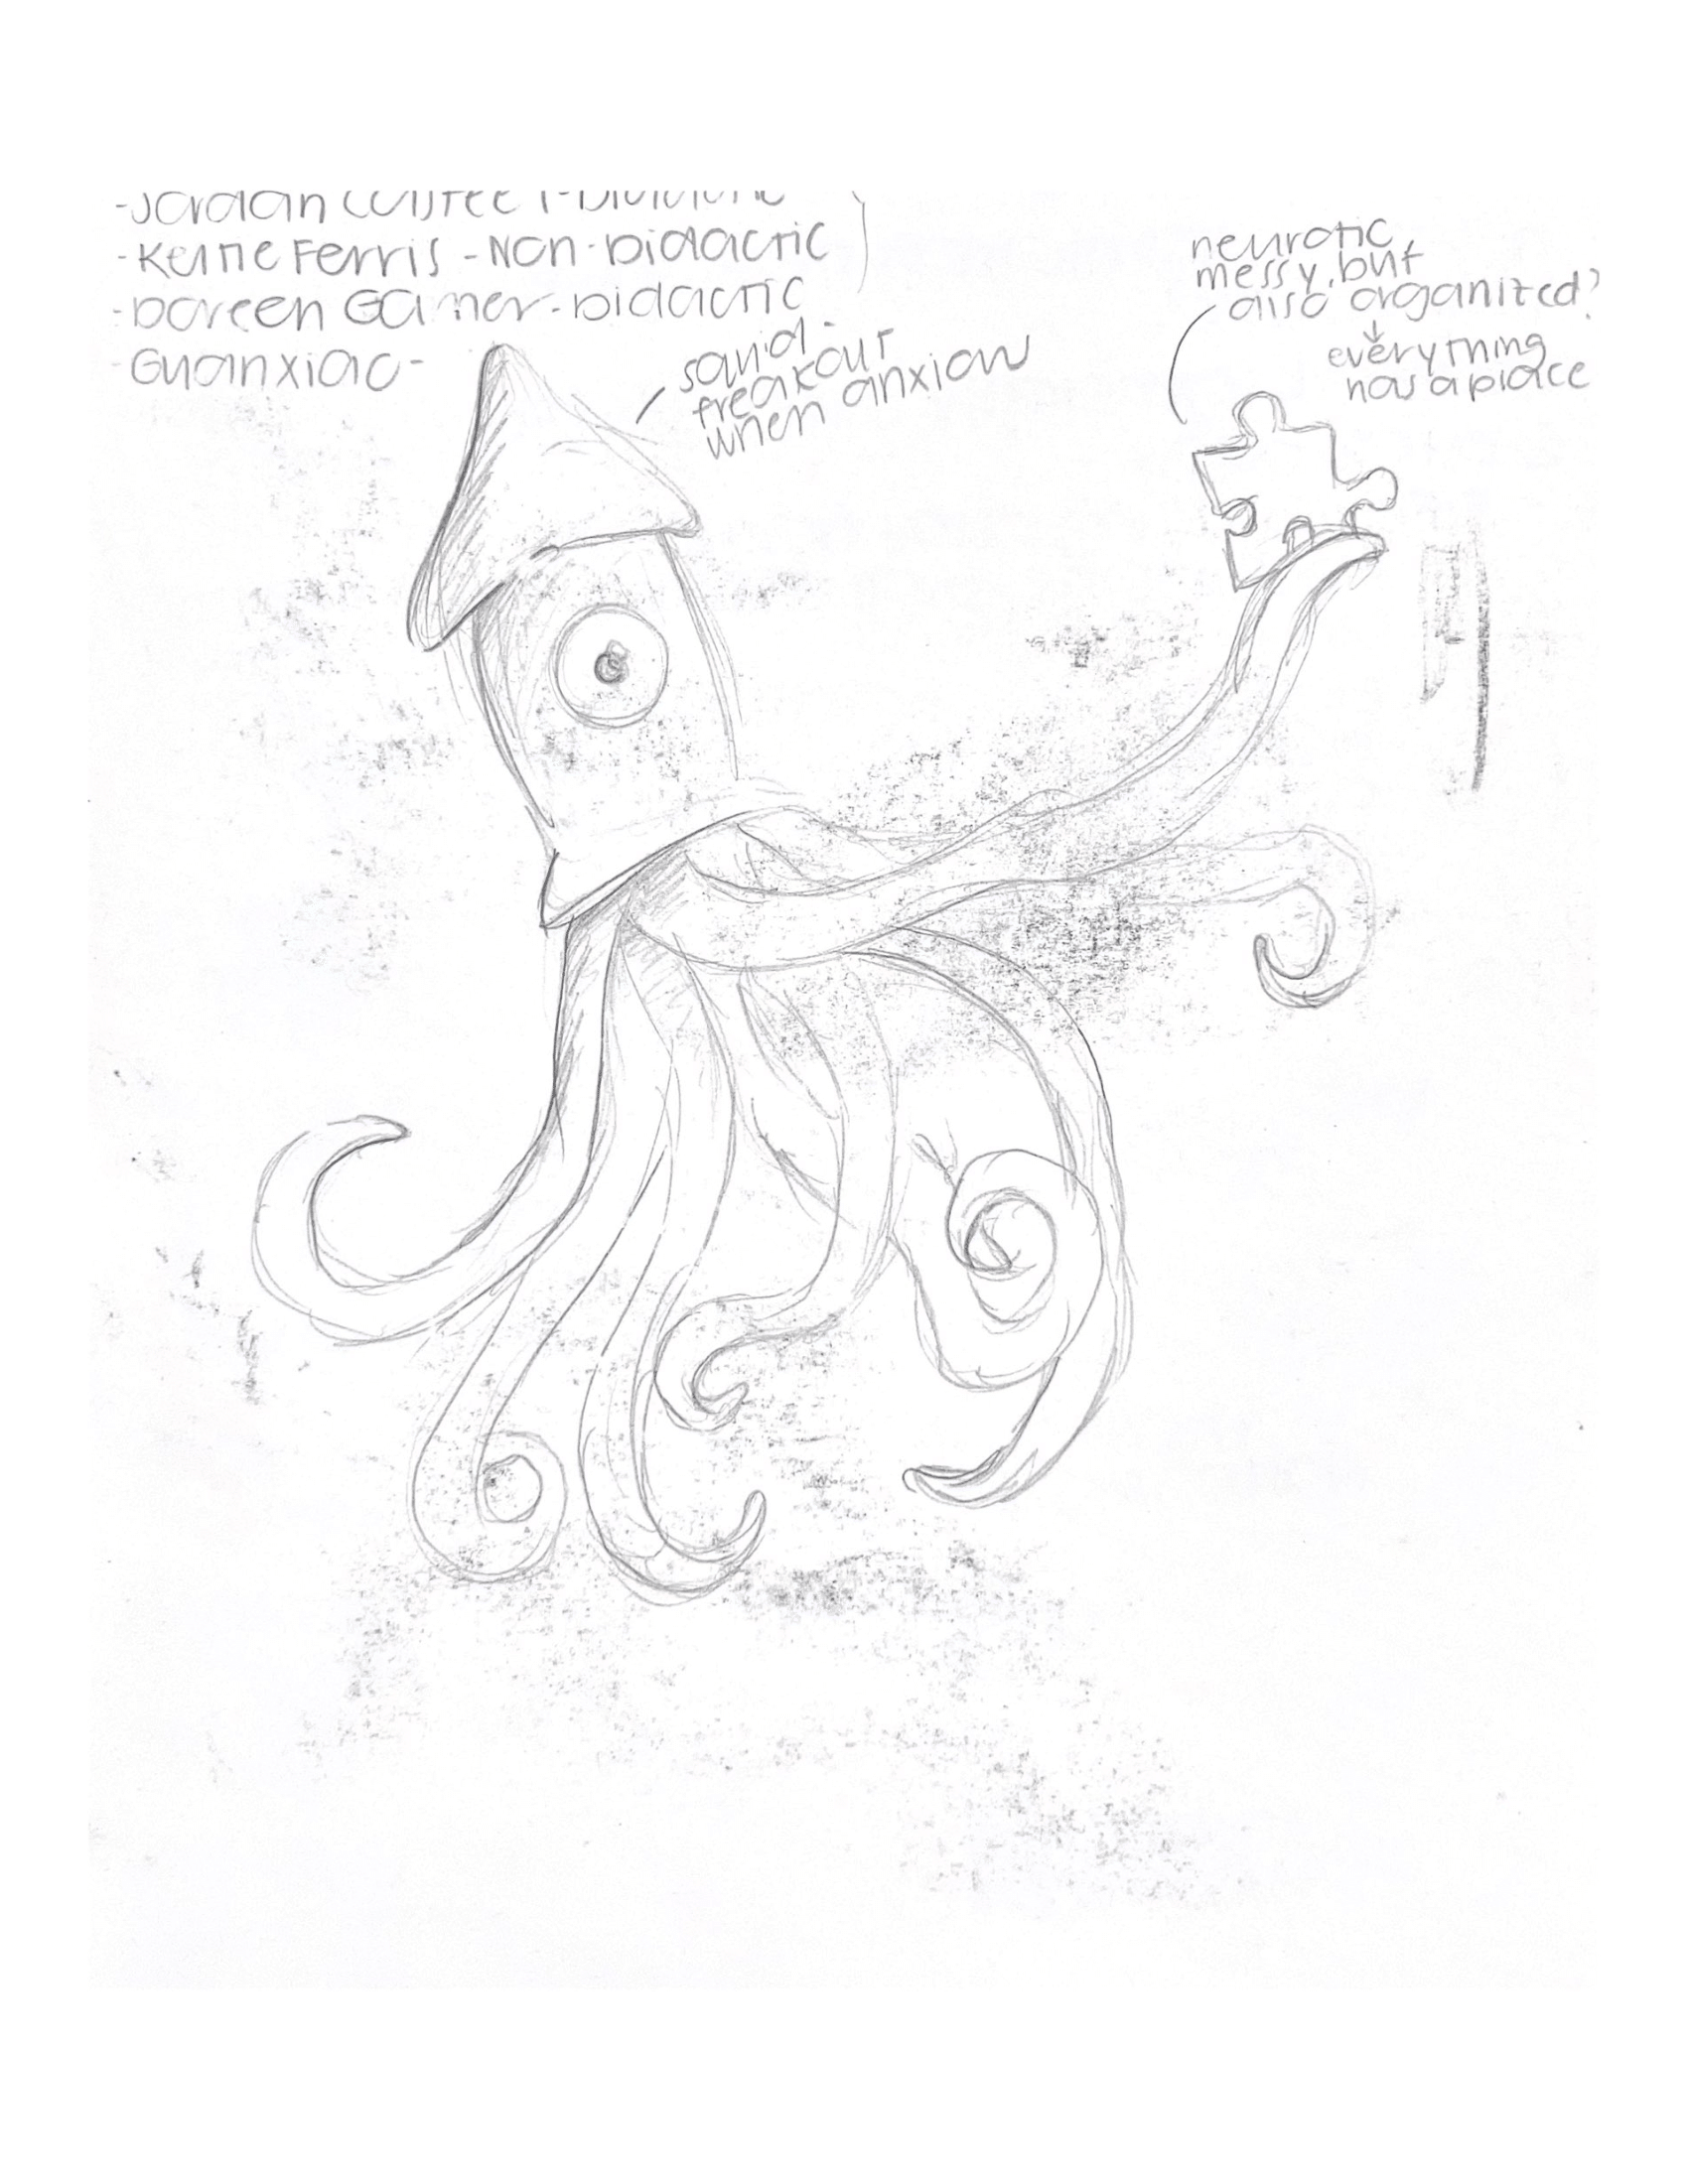 -Jordan
-Keltie Ferris - Non-Didactic
-Doreen Garner - Didactic
-Guanxiao-
squid -
freakout
when anxious
neurotic
messy, but
also organized?
↓
everything
has a place